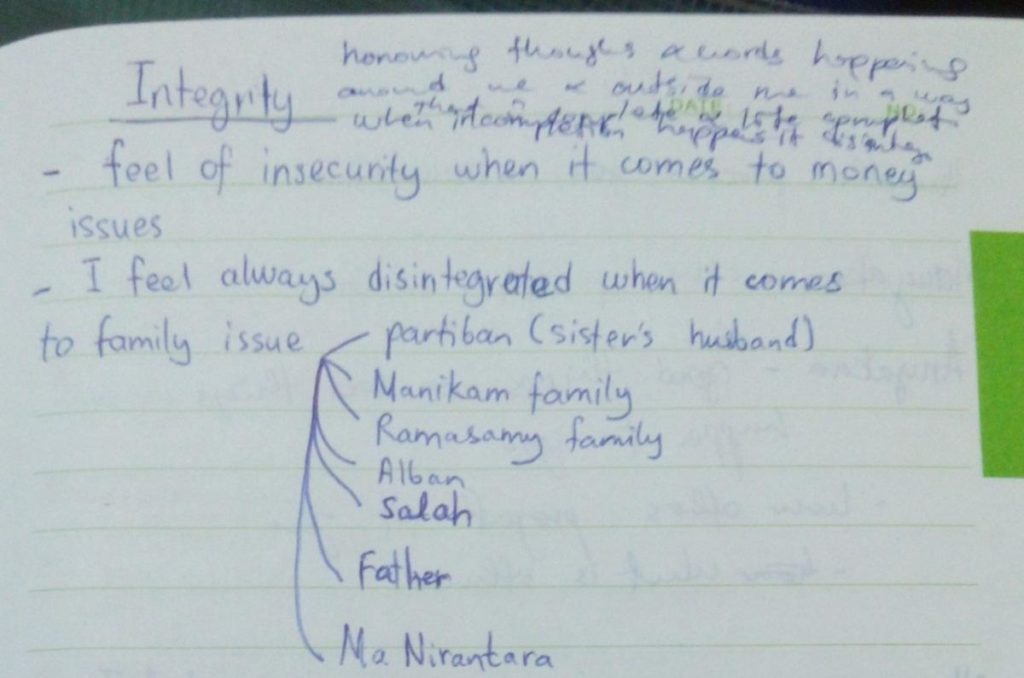 Integrity
honouring thoughts & words happening
around me & outside me in a way
that
when happens it
DATE
NO.
- feel of insecurity when it comes to money
issues
- I feel always disintegrated when it comes
to family issue
partiban (sister's husband)
Manikam family
Ramasamy family
Alban
Salah
Father
Ma Nirantara